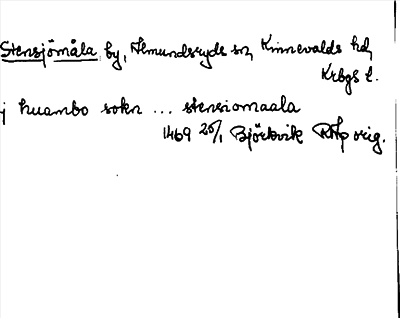 Stensjömåla by, Almundsryds sn, Kinnevalds hd,
Krbgs l.
j huambo sokn ... stensiomaala
1469 25/1 Björkvik RAp orig.